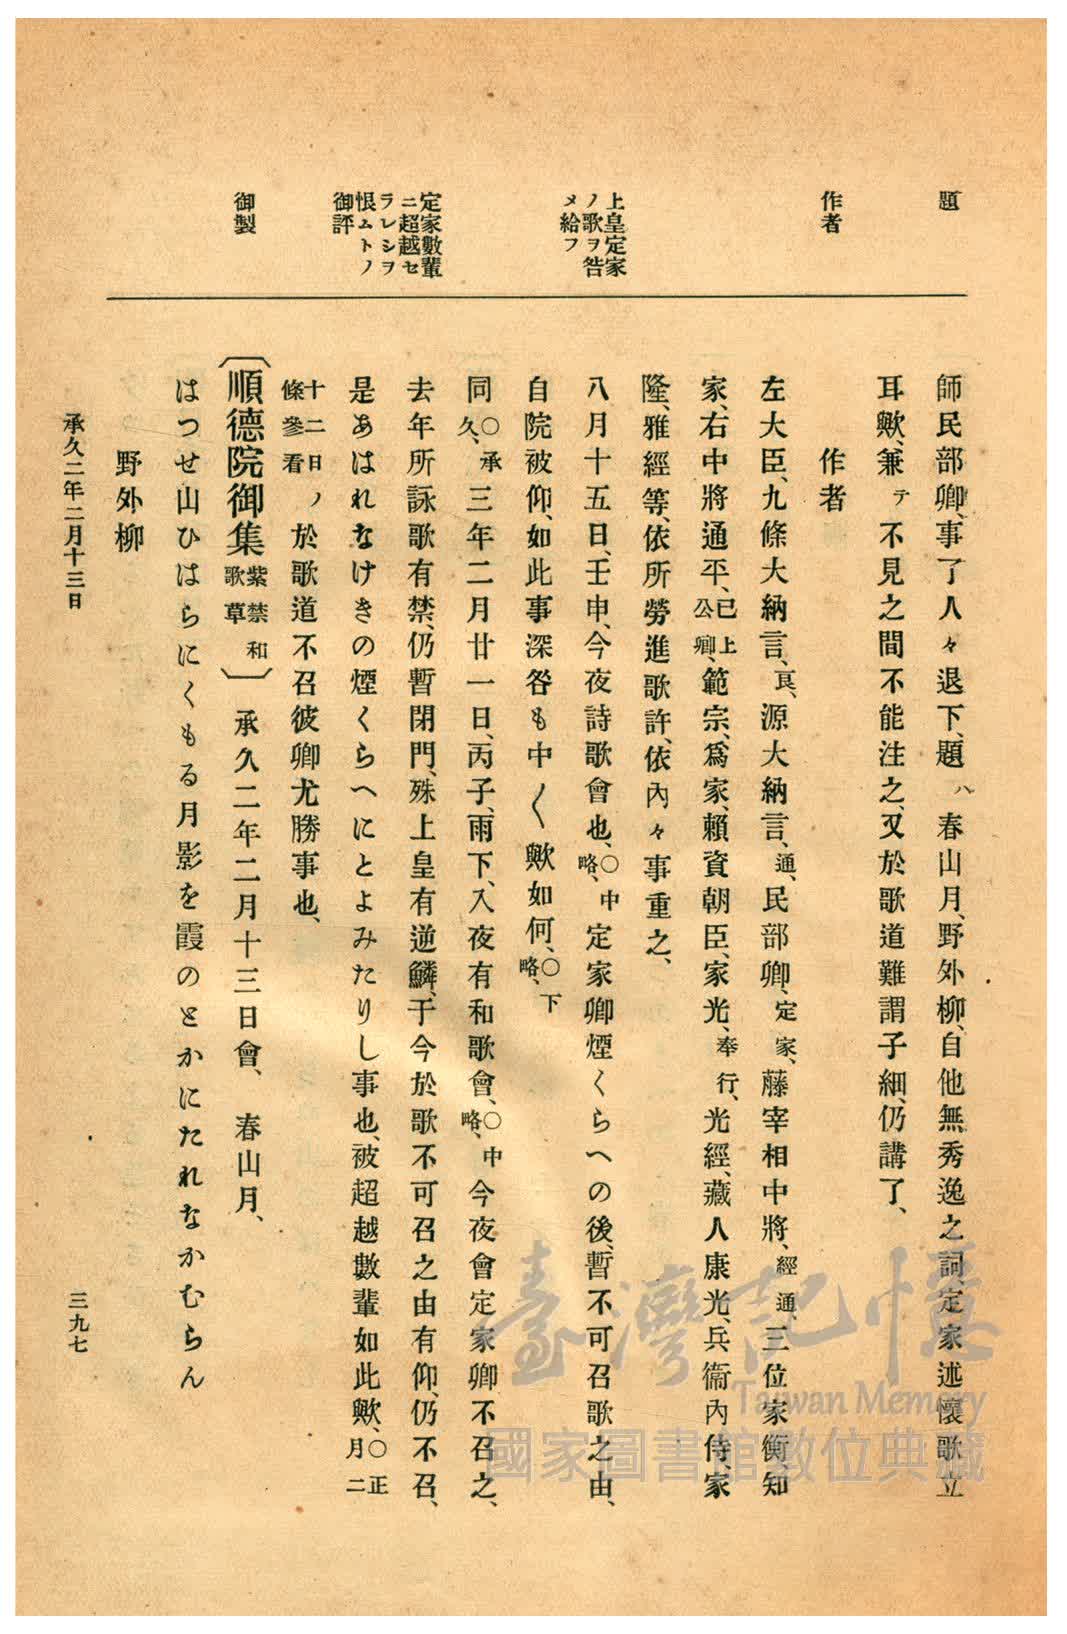 題
作者
上皇定家
ノ歌ヲ咎
メ給フ
定家數輩
ニ超越セ
ラレシヲ
恨ムトノ
御評
御製
師民部卿、事了人々退下、題ハ春山月、野外柳、自他無秀逸之詞、定家述懷歌立
耳歟、兼テ不見之間不能注之、又於歌道難謂子細、仍講了、
作者
左大臣、九條大納言、良、源大納言、通、民部卿、定家、藤宰相中將、經通、三位家衡、知
家、右中將通平、已上公卿、範宗、爲家、賴資朝臣、家光、奉行、光經、藏人康光、兵衞內侍、家
隆、雅經等、依所勞進歌許、依內々事重之、
八月十五日、壬申、今夜詩歌會也、〇中略、定家卿煙くらへの後、暫不可召歌之由、
自院被仰、如此事深咎も中〱歟如何、〇下略、
同〇承久、三年二月廿一日、丙子、雨下、入夜有和歌會、〇中略、今夜會定家卿不召之、
去年所詠歌有禁、仍暫閉門、殊上皇有逆鱗、于今於歌不可召之由有仰、仍不召、
是あはれなけきの煙くらへにとよみたりし事也、被超越數輩如此歟、〇正月二
十二日ノ條參看於歌道不召彼卿尤勝事也、
〔順德院御集紫禁和歌草〕 承久二年二月十三日會、 春山月、
はつせ山ひはらにくもる月影を霞のとかにたれなかむらん
野外柳
承久二年二月十三日
三九七
臺灣記憶
Taiwan Memory
國家圖書館數位典藏